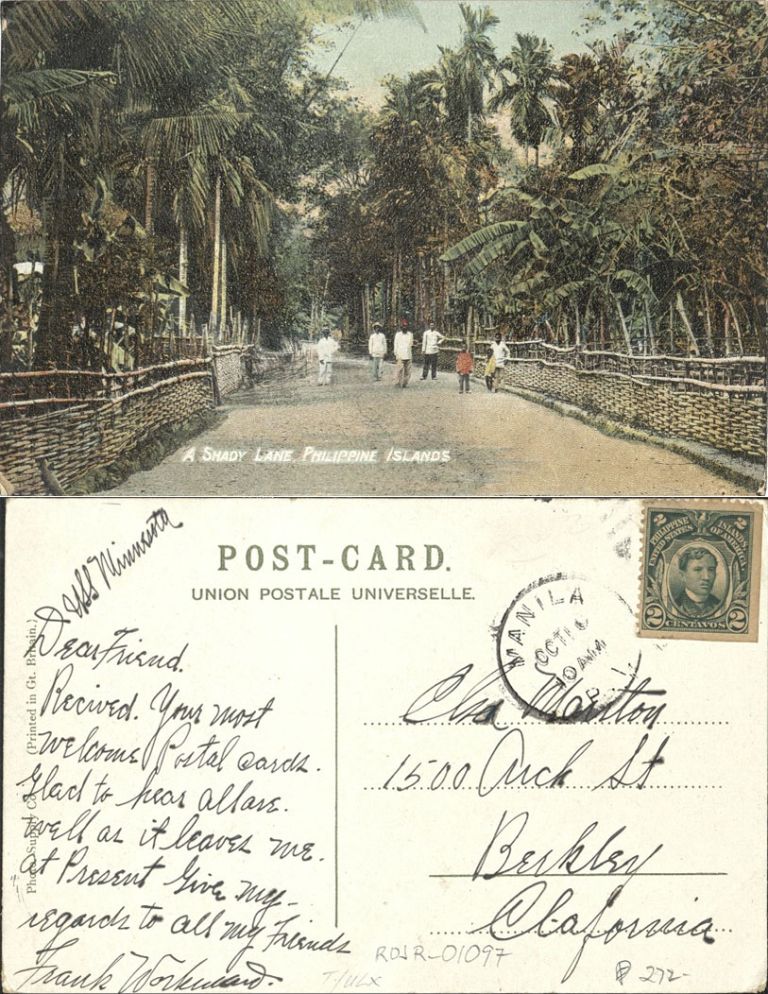 A SHADY LANE, PHILIPPINE ISLANDS
USS Minnesota
POST-CARD.
UNION POSTALE UNIVERSELLE.
PHILIPPINE ISLANDS
UNITED STATES OF AMERICA
2 2
2 CENTAVOS 2
MANILA
OCT
10 AM
P. I.
(Printed in Gt. Britain.)
Photo Supply Co
Dear Friend.
Recived. Your most
welcome Postal cards.
Glad to hear all are.
well as it leaves me.
at Present Give my-
regards to all my Friends
Frank
1500 Arch St
Berkley
Claifornia
RDJR-01097
272-